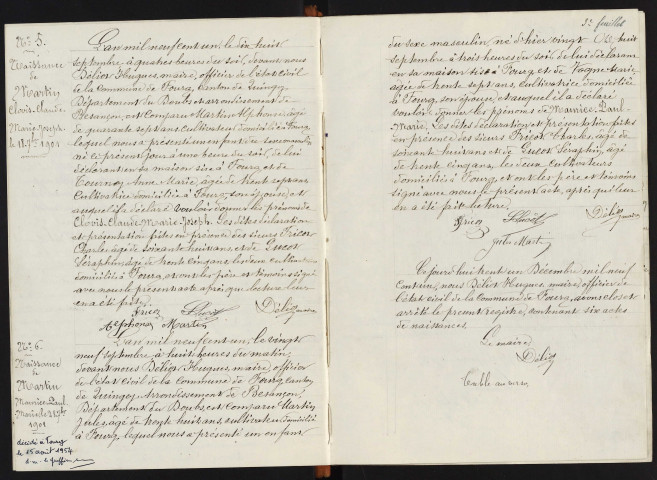 N° 5.
Naissance
de
Martin
Clovis-Claude-
Marie-Joseph
le 18 7bre 1901
L'an mil neuf cent un, le dix huit
septembre à quatre heures du soir, devant nous
Bélier Hugues, maire, officier de l'état civil
de la Commune de Fourg, Canton de Quingey
Département du Doubs et arrondissement de
Besançon, est comparu Martin Alphonse âgé
de quarante sept ans, cultivateur domicilié à Fourg
lequel nous a présenté un enfant du sexe masculin
né ce présent jour à une heure du soir, de lui
déclarant en sa maison sise à Fourg et de
Anne Marie, âgée de trente sept ans
Cultivatrice domiciliée à Fourg, son épouse, et
auquel il a déclaré vouloir donner les prénoms de
Clovis-Claude-Marie-Joseph. Les dites déclaration
et présentation faites en présence des sieurs Tricot
Charles, âgé de soixante huit ans, et de
Séraphin, âgé de trente cinq ans, les deux cultivateurs
domiciliés à Fourg, et ont les père et témoins signé
avec nous le présent acte après que lecture leur
en a été faite.
Alphonse Martin
N° 6.
Naissance
de
Martin
Maurice-Paul-
Marie le 28 7bre
1901
décédé à Fourg
le 15 août 1954
L'an mil neuf cent un, le vingt
neuf septembre, à huit heures du matin,
devant nous Bélier Hugues, maire, officier
de l'état civil de la Commune de Fourg, canton
de Quingey, arrondissement de Besançon,
Département du Doubs, est comparu Martin
Jules, âgé de trente huit ans, cultivateur domicilié
à Fourg, lequel nous a présenté un enfant
3e feuillet
du sexe masculin, né d'hier vingt huit
septembre à trois heures du soir, de lui déclarant
en sa maison sise à Fourg et de Marie
âgée de trente sept ans, cultivatrice domiciliée
à Fourg, son épouse, et auquel il a déclaré
vouloir donner les prénoms de Maurice-Paul-
Marie. Les dites déclaration et présentation faites
en présence des sieurs Tricot Charles, âgé de
soixante huit ans et de Séraphin, âgé
de trente cinq ans, les deux cultivateurs
domiciliés à Fourg, et ont les père et témoins
signé avec nous le présent acte, après que lecture leur
en a été faite.
Jules Martin
Ce jourd'hui trente un Décembre mil neuf
cent un, nous Bélier Hugues, maire, officier de
l'état civil de la Commune de Fourg, avons clos et
arrêté le présent registre, contenant six actes
de naissances.
Le maire
Table au verso